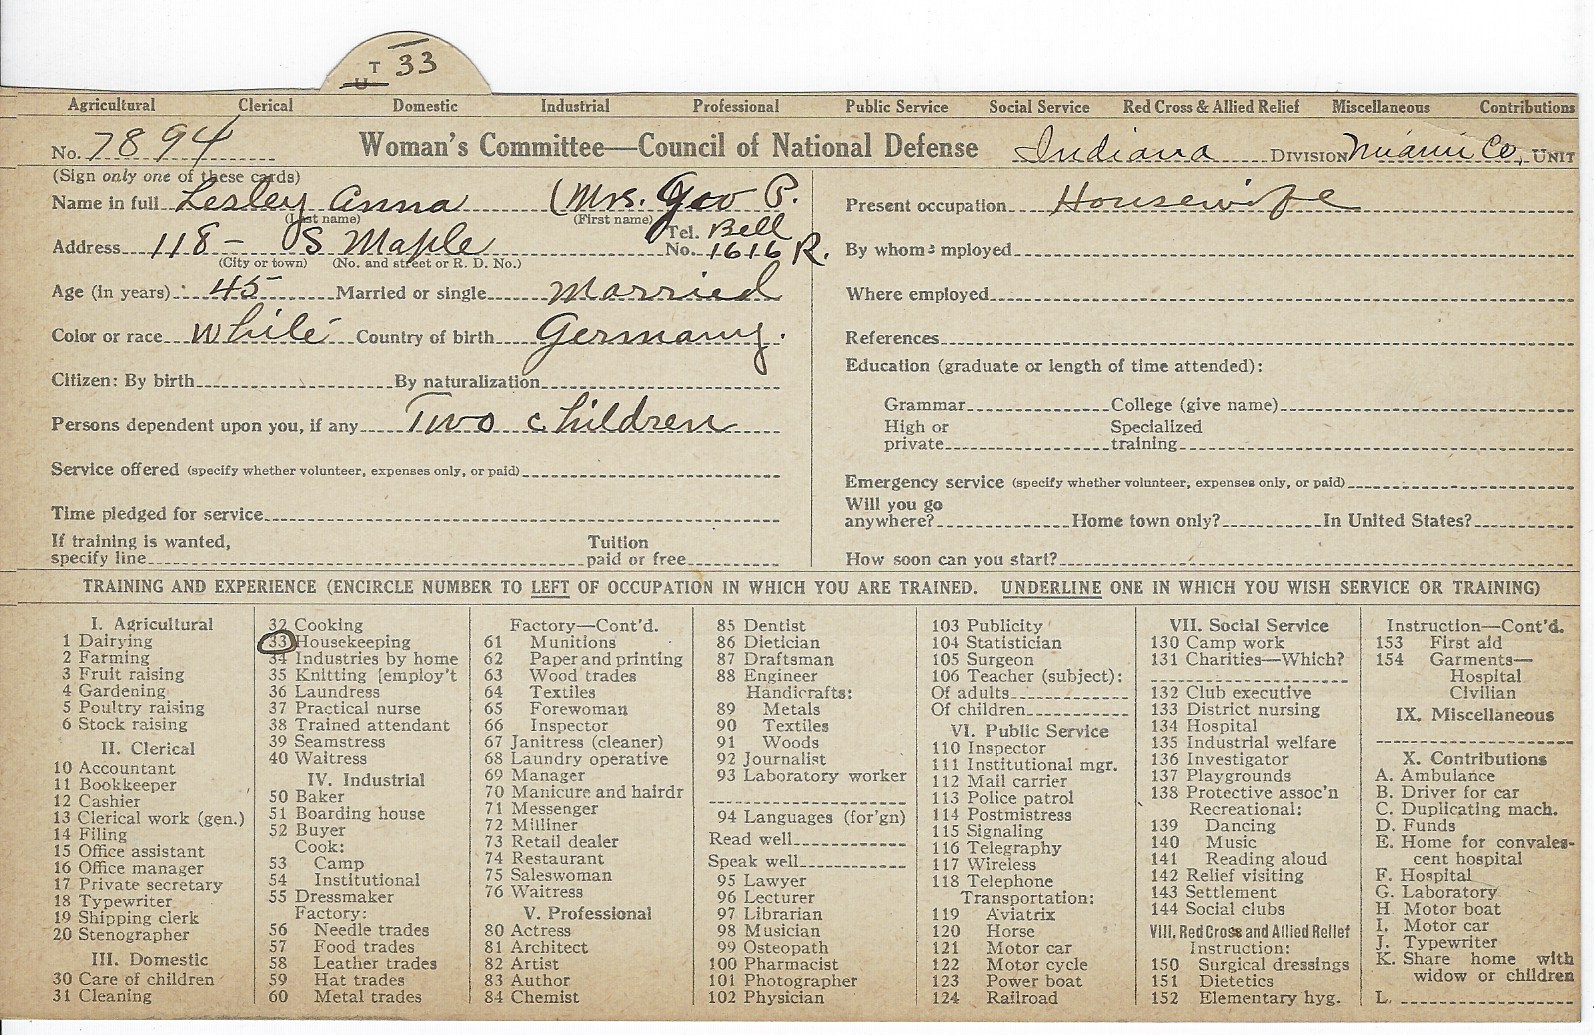 T 33
U
Agricultural Clerical Domestic Industrial Professional Public Service Social Service Red Cross & Allied Relief Miscellaneous Contributions
No. 7894 Woman's Committee—Council of National Defense Indiana DIVISION Miami Co. UNIT
(Sign only one of these cards)
Name in full Lesley Anna (Mrs. Geo P.
(Last name) (First name)
Address 118- S Maple Tel. No. Bell 1616 R.
(City or town) (No. and street or R. D. No.)
Age (in years) 45 Married or single Married
Color or race White Country of birth Germany.
Citizen: By birth By naturalization
Persons dependent upon you, if any Two children
Service offered (specify whether volunteer, expenses only, or paid)
Time pledged for service
If training is wanted, specify line Tuition paid or free
Present occupation Housewife
By whom employed
Where employed
References
Education (graduate or length of time attended):
Grammar College (give name)
High or private Specialized training
Emergency service (specify whether volunteer, expenses only, or paid)
Will you go anywhere? Home town only? In United States?
How soon can you start?
TRAINING AND EXPERIENCE (ENCIRCLE NUMBER TO LEFT OF OCCUPATION IN WHICH YOU ARE TRAINED. UNDERLINE ONE IN WHICH YOU WISH SERVICE OR TRAINING)
I. Agricultural
1 Dairying
2 Farming
3 Fruit raising
4 Gardening
5 Poultry raising
6 Stock raising
II. Clerical
10 Accountant
11 Bookkeeper
12 Cashier
13 Clerical work (gen.)
14 Filing
15 Office assistant
16 Office manager
17 Private secretary
18 Typewriter
19 Shipping clerk
20 Stenographer
III. Domestic
30 Care of children
31 Cleaning
32 Cooking
33 Housekeeping
34 Industries by home
35 Knitting [employ't
36 Laundress
37 Practical nurse
38 Trained attendant
39 Seamstress
40 Waitress
IV. Industrial
50 Baker
51 Boarding house
52 Buyer
Cook:
53 Camp
54 Institutional
55 Dressmaker
Factory:
56 Needle trades
57 Food trades
58 Leather trades
59 Hat trades
60 Metal trades
Factory—Cont'd.
61 Munitions
62 Paper and printing
63 Wood trades
64 Textiles
65 Forewoman
66 Inspector
67 Janitress (cleaner)
68 Laundry operative
69 Manager
70 Manicure and hairdr
71 Messenger
72 Milliner
73 Retail dealer
74 Restaurant
75 Saleswoman
76 Waitress
V. Professional
80 Actress
81 Architect
82 Artist
83 Author
84 Chemist
85 Dentist
86 Dietician
87 Draftsman
88 Engineer
Handicrafts:
89 Metals
90 Textiles
91 Woods
92 Journalist
93 Laboratory worker
94 Languages (for'gn)
Read well
Speak well
95 Lawyer
96 Lecturer
97 Librarian
98 Musician
99 Osteopath
100 Pharmacist
101 Photographer
102 Physician
103 Publicity
104 Statistician
105 Surgeon
106 Teacher (subject):
Of adults
Of children
VI. Public Service
110 Inspector
111 Institutional mgr.
112 Mail carrier
113 Police patrol
114 Postmistress
115 Signaling
116 Telegraphy
117 Wireless
118 Telephone
Transportation:
119 Aviatrix
120 Horse
121 Motor car
122 Motor cycle
123 Power boat
124 Railroad
VII. Social Service
130 Camp work
131 Charities—Which?
132 Club executive
133 District nursing
134 Hospital
135 Industrial welfare
136 Investigator
137 Playgrounds
138 Protective assoc'n
Recreational:
139 Dancing
140 Music
141 Reading aloud
142 Relief visiting
143 Settlement
144 Social clubs
VIII. Red Cross and Allied Relief
Instruction:
150 Surgical dressings
151 Dietetics
152 Elementary hyg.
Instruction—Cont'd.
153 First aid
154 Garments—
Hospital
Civilian
IX. Miscellaneous
X. Contributions
A. Ambulance
B. Driver for car
C. Duplicating mach.
D. Funds
E. Home for convales-
cent hospital
F. Hospital
G. Laboratory
H Motor boat
I. Motor car
J. Typewriter
K. Share home with
widow or children
L.